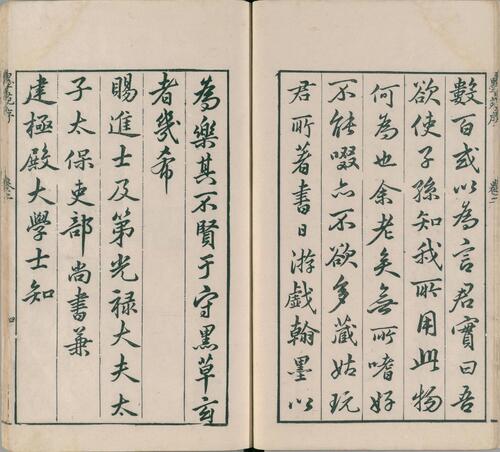 數百或以為言君實曰吾
欲使子孫知我所用此物
何為也余老矣無所嗜好
不能啜亦不欲多藏姑玩
君所著書日游戲翰墨以
為樂其不賢于守黑草玄
者幾希
賜進士及第光祿大夫太
子太保吏部尚書兼
建極殿大學士知
四